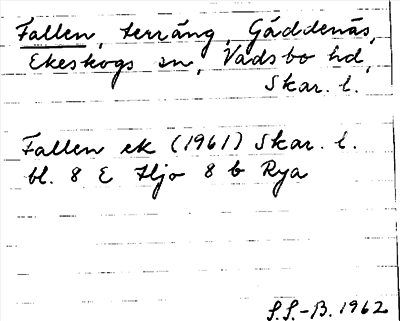 Fallen, terräng, Gäddenäs,
Ekeskogs sn, Vadsbo hd,
Skar. l.
Fallen ek (1961) Skar. l.
bl. 8 E Hjo 8 b Rya
S.S.-B. 1962